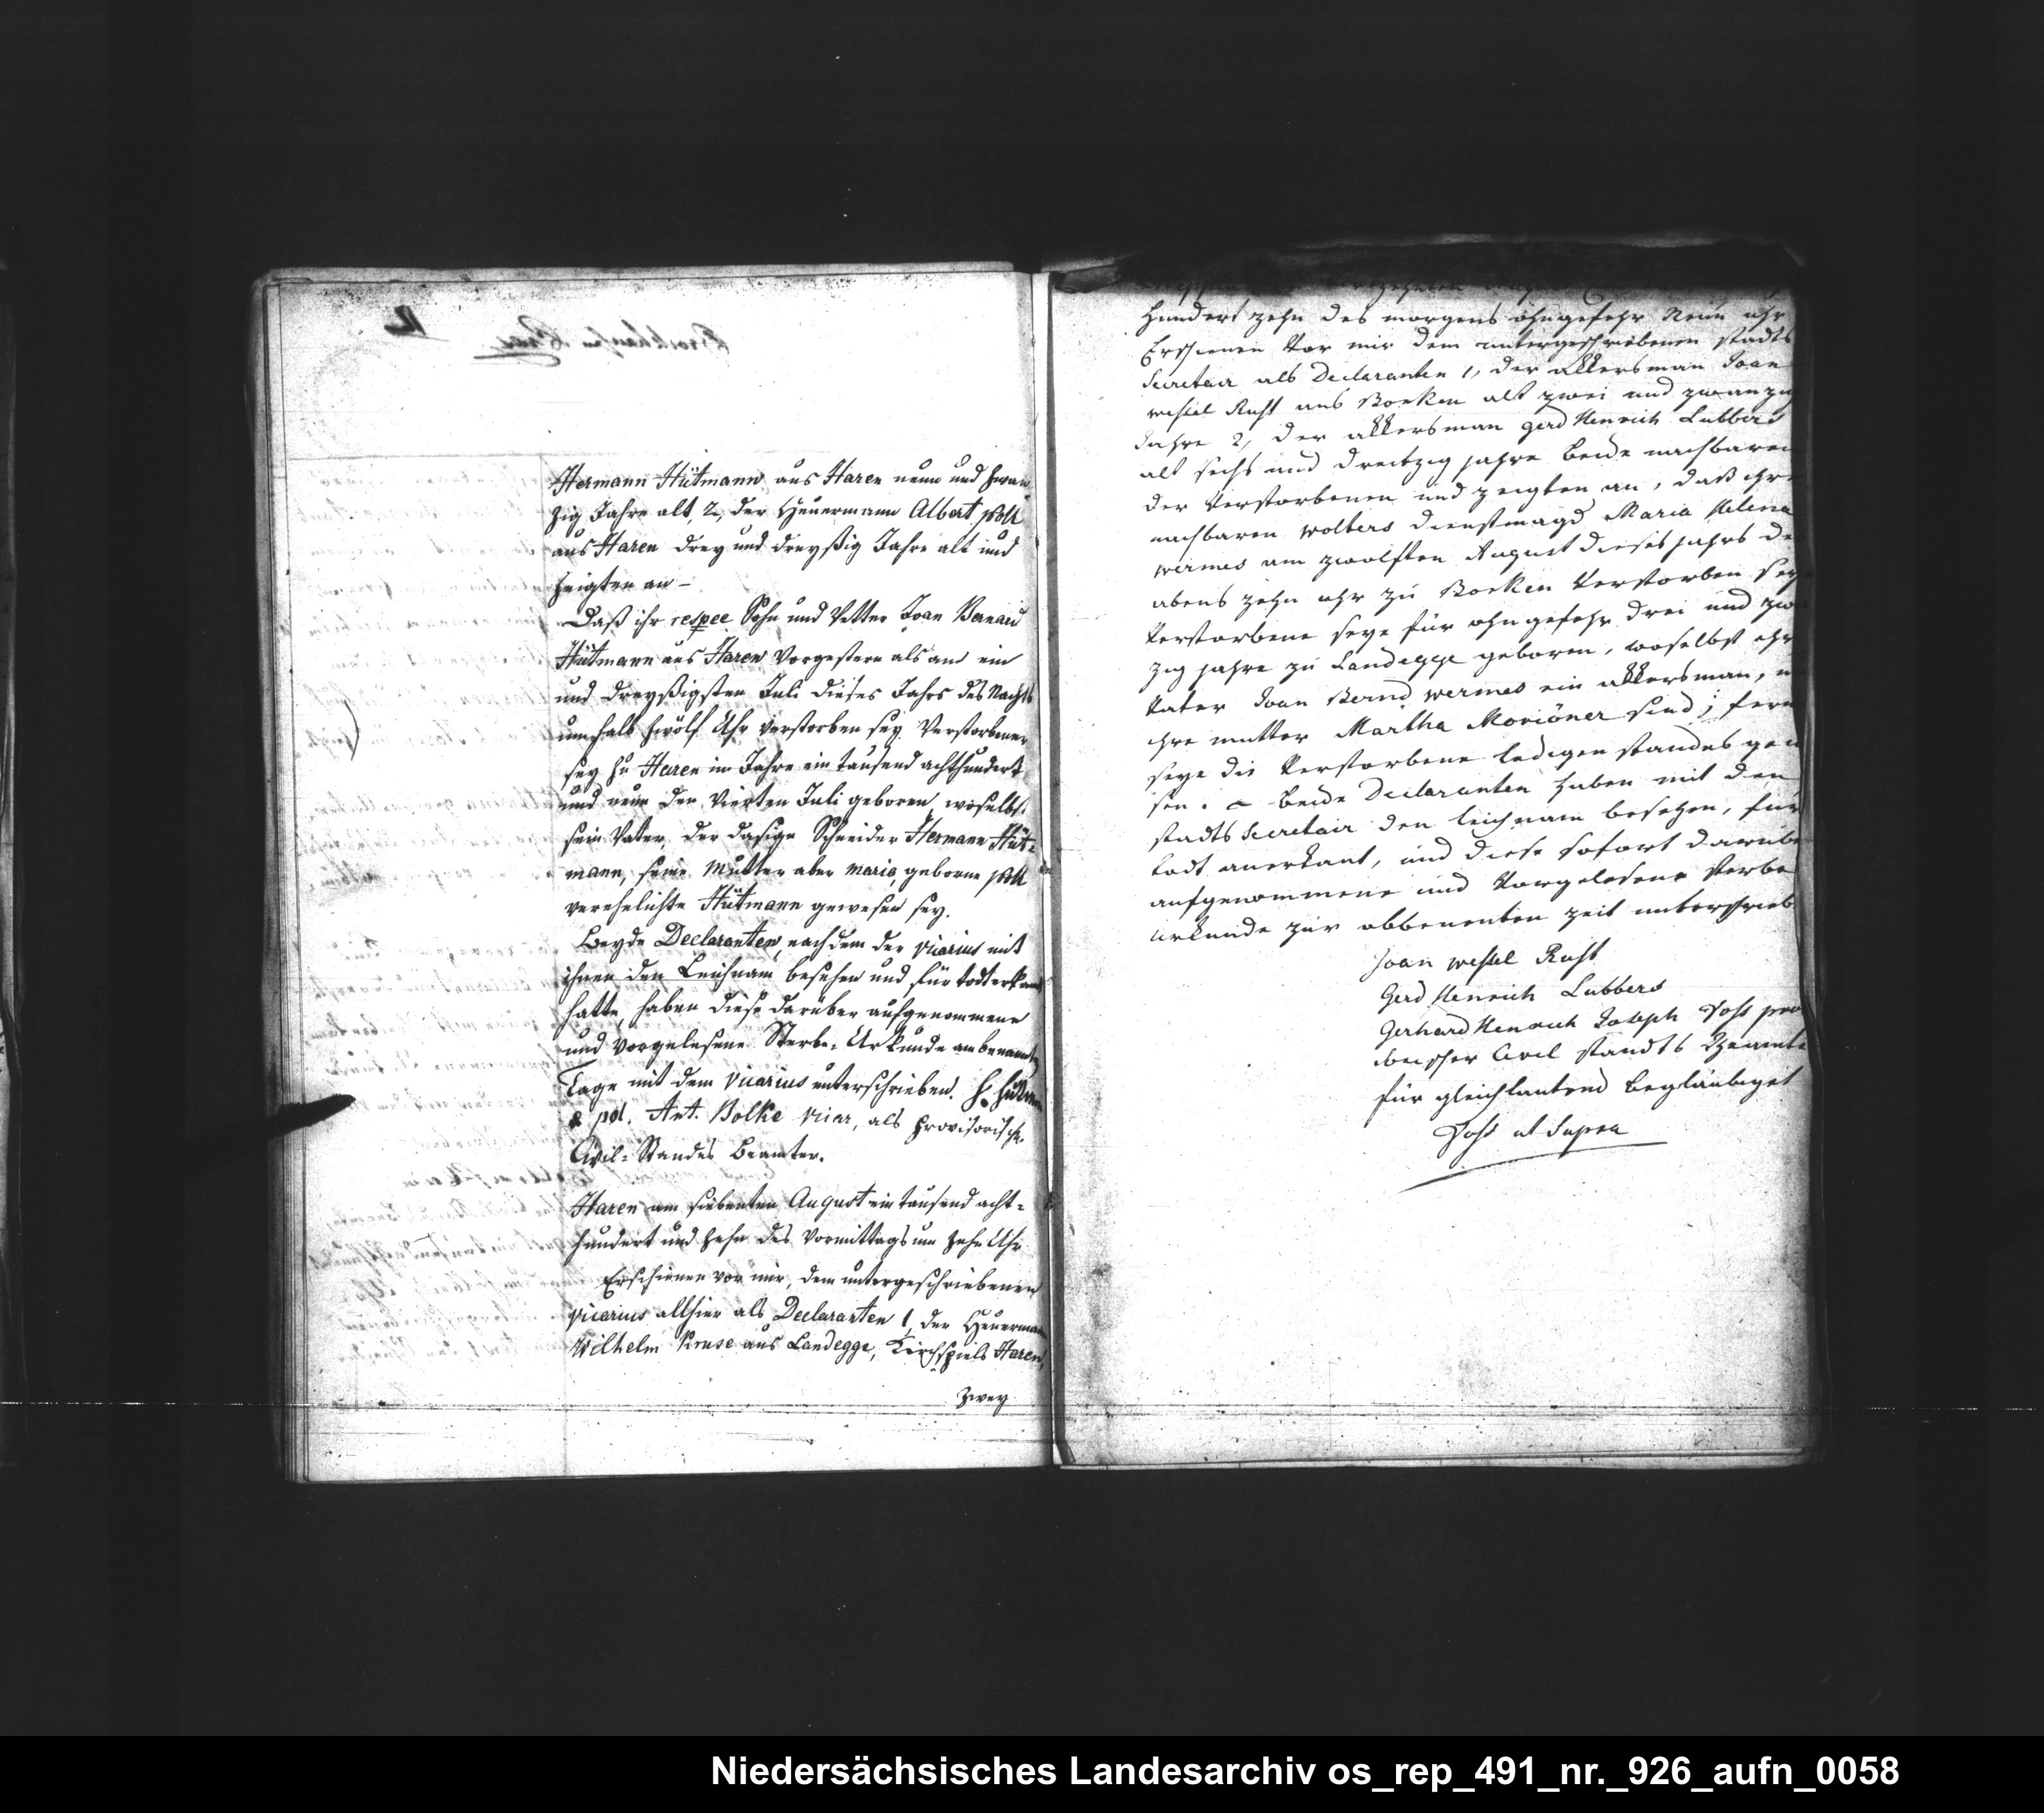 Hermann Hütmann aus Haren neun und zwan-
zig Jahre alt, 2, der Heuermann Albert Poll
aus Haren drey und dreyßig Jahre alt und
zeigten an –
Daß ihr respee Sohn und Vetter Joan Bernard
Hütmann aus Haren vorgestern als am ein
und dreyßigsten Juli dieses Jahrs des Nachts
um halb zwölf Uhr verstorben sey. Verstorbener
sey zu Haren im Jahre ein tausend achthundert
und neun den vierten Juli geboren, woselbst
sein Vater der dasige Schneider Hermann Hüt-
mann, seine Mutter aber Maria, geborne Poll
verehelichte Hütmann gewesen sey.
Beyde Declaranten, nachdem der Vicarius mit
ihnen den Leichnam besehen und für todt erkant
hatte, haben diese darüber aufgenommene
und vorgelesene Sterbe-Urkunde am benannten
Tage mit dem Vicarius unterschrieben. H. Hütman
Ant. Bolke Vicar, als provisorischer
Civil-Standes Beamter.
Haren am siebenten August ein tausend acht-
hundert und zehn des Vormittags um zehn Uhr
Erschienen vor mir, dem untergeschriebenen
Vicarius allhier als Declaranten 1, der Heuermann
Wilhelm Kruse aus Landegge, Kirchspiels Haren,
zwey
hundert zehn des morgens ohngefehr Neun uhr
Erschienen vor mir dem untergeschriebenen stadts
Secretair als Declaranten 1, der akkersman Joan
wessel Rust aus Borken alt zwei und zwanzig
Jahre 2, der akkersman Gerd Henrich Lubbers
alt sechs und dreitzig jahre beide nachbaren
der verstorbenen und zeigten an, daß ihr
nachbaren wolbers dienstmagd Maria Helena
wermes am zwolften August dieses jahrs de
abens zehn uhr zu Borken verstorben sey
verstorbene seye für ohngefehr drei und zwan
zig jahre zu Landegge geboren, woselbst ihr
vater Joan Bernd wermes ein akkersman, u
ihre mutter Martha Moriöner sind; fern
seye die verstorbene ledigen standes gew
sen. – beide Declaranten haben mit den
stadts Secretair den leichnam besehen, für
todt anerkant, und diese sofort darübe
aufgenommene und vorgelesene sterbe
urkunde zur obbenenten zeit unterschrieb
Joan wessel Rust
Gerd Henrich Lubbers
Gerhard Henrich Joseph Voss pro
scher Civil standts Beamte
für gleichlautend beglaubiget
Voss ut Supra
Niedersächsisches Landesarchiv os_rep_491_nr._926_aufn_0058